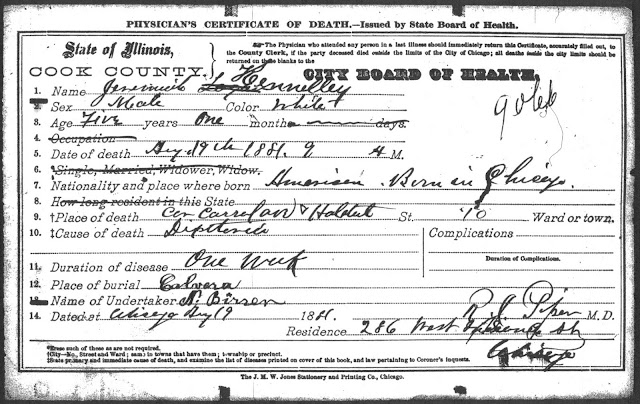 PHYSICIAN'S CERTIFICATE OF DEATH.—Issued by State Board of Health.
State of Illinois,
COOK COUNTY.
The Physician who attended any person in a last illness should immediately return this Certificate, accurately filled out, to
the County Clerk, if the party deceased died outside the limits of the City of Chicago; all deaths inside the city limits should be
returned on these blanks to the
CITY BOARD OF HEALTH.
1. Name Jeremiah Hennelley
2. Sex Male Color White
3. Age Five years One months days.
4. Occupation
5. Date of death Aug. 19th 1881. 9 A M.
6. Single, Married, Widower, Widow.
7. Nationality and place where born American. Born in Chicago.
8. How long resident in this State
9. †Place of death Cor Carroll av & Halsted St. "10 Ward or town.
10. ‡Cause of death Diptheria Complications
Duration of Complications.
11. Duration of disease One Week
12. Place of burial Calvera
13. Name of Undertaker N. Birren
14. Dated at Chicago Aug 19 1881. R J Piper M.D.
Residence 286 West St
Chicago
*Erase such of these as are not required.
†City—No., Street and Ward; same to towns that have them; township or precinct.
‡State primary and immediate cause of death, and examine the list of diseases printed on cover of this book, and law pertaining to Coroner's inquests.
The J. M. W. Jones Stationery and Printing Co., Chicago.